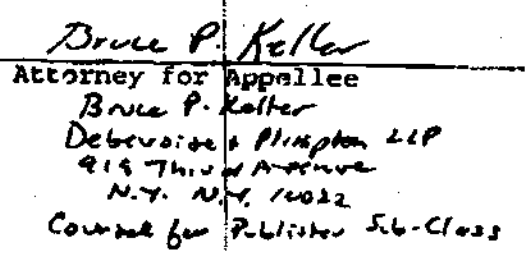 Bruce P. Keller
Attorney for Appellee
Bruce P. Keller
Debevoise & Plimpton LLP
919 Third Avenue
N.Y. N.Y. 10022
Counsel for Publisher Sub-Class